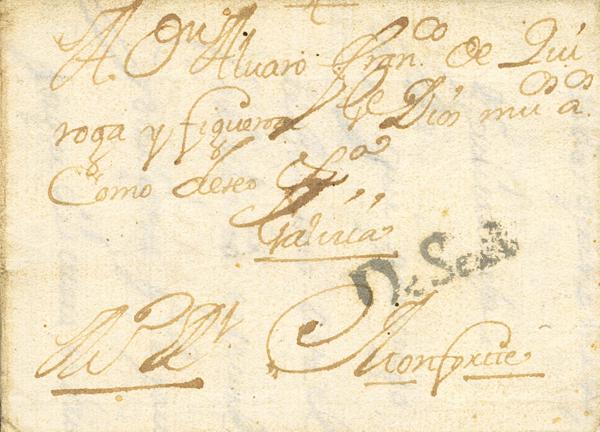 A Dn Alvaro Franco de Qui
roga y figueroa ge Dios mus as
Como deseo
Galicia
De Sev
Monforte